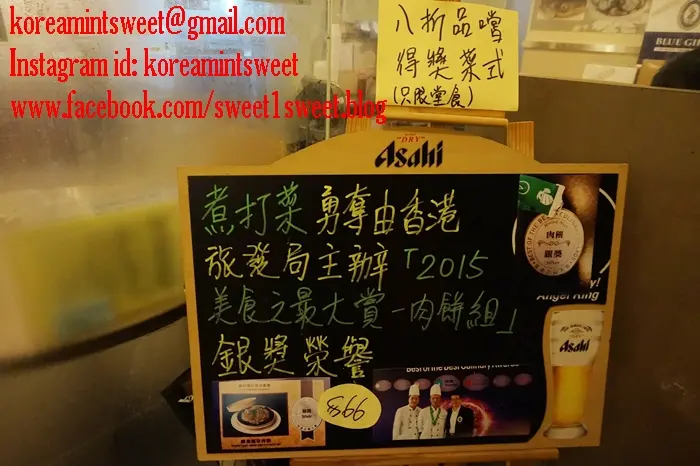 koreamintsweet@gmail.com
Instagram id: koreamintsweet
www.facebook.com/sweet1sweet.blog
八折品嚐
得獎菜式
(只限堂食)
BLUE GI
"DRY"
Asahi
煮打菜 勇奪由香港
旅發局主辦「2015
美食之最大賞-肉餅組」
銀獎榮譽
肉餅
銀獎
Angel King
Asahi
$66
Best of the Best Culinary Awards